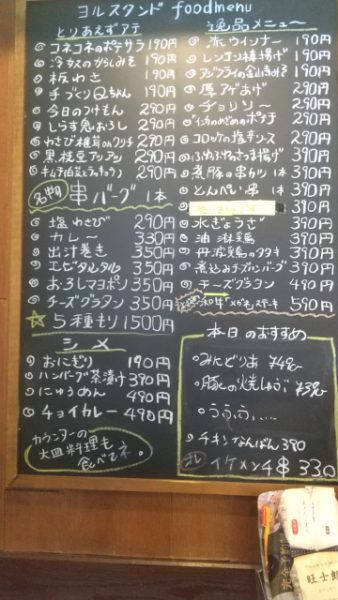 ヨルスタンド foodmenu
とりあえずアテ
コネコネのポテサラ 190円
冷ナスのからしみそ 190円
板わさ 190円
手づくりQちゃん 190円
今日のつけもん 290円
しらす鬼おろし 290円
わさび椎茸onクリチ 290円
黒枝豆アッアン 290円
キムチ
名門 串バーグ 1本
塩わさび 290円
カレー 330円
出汁巻き 350円
エビタルタル 350円
おろしマヨポン 350円
チーズグラタン 350円
☆5種もり 1500円
シメ
おにぎり 190円
ハンバーグ茶漬け 390円
にゅうめん 490円
チョイカレー 490円
カウンターの
大皿料理も
食べてネ。
逸品メニュー
赤ウインナー 190円
レンコン棒揚げ 190円
アジフライの金山寺みそ 190円
厚アゲあげ 290円
チョリソー 290円
290円
コロッケの塩チーズ 290円
390円
煮豚の串カツ 1本 390円
とんぺい串 1本 390円
390円
水ぎょうざ 390円
油淋鶏 390円
丹波鶏のタタキ 390円
煮込みチーズハンバーグ 390円
チーズグラタン 490円
和牛 ステーキ 590円
本日のおすすめ
みたどりあ 490
豚の焼しゅう 390
うふふ、....
チキンなんばん 390
イケメン4串 330
旺士郎